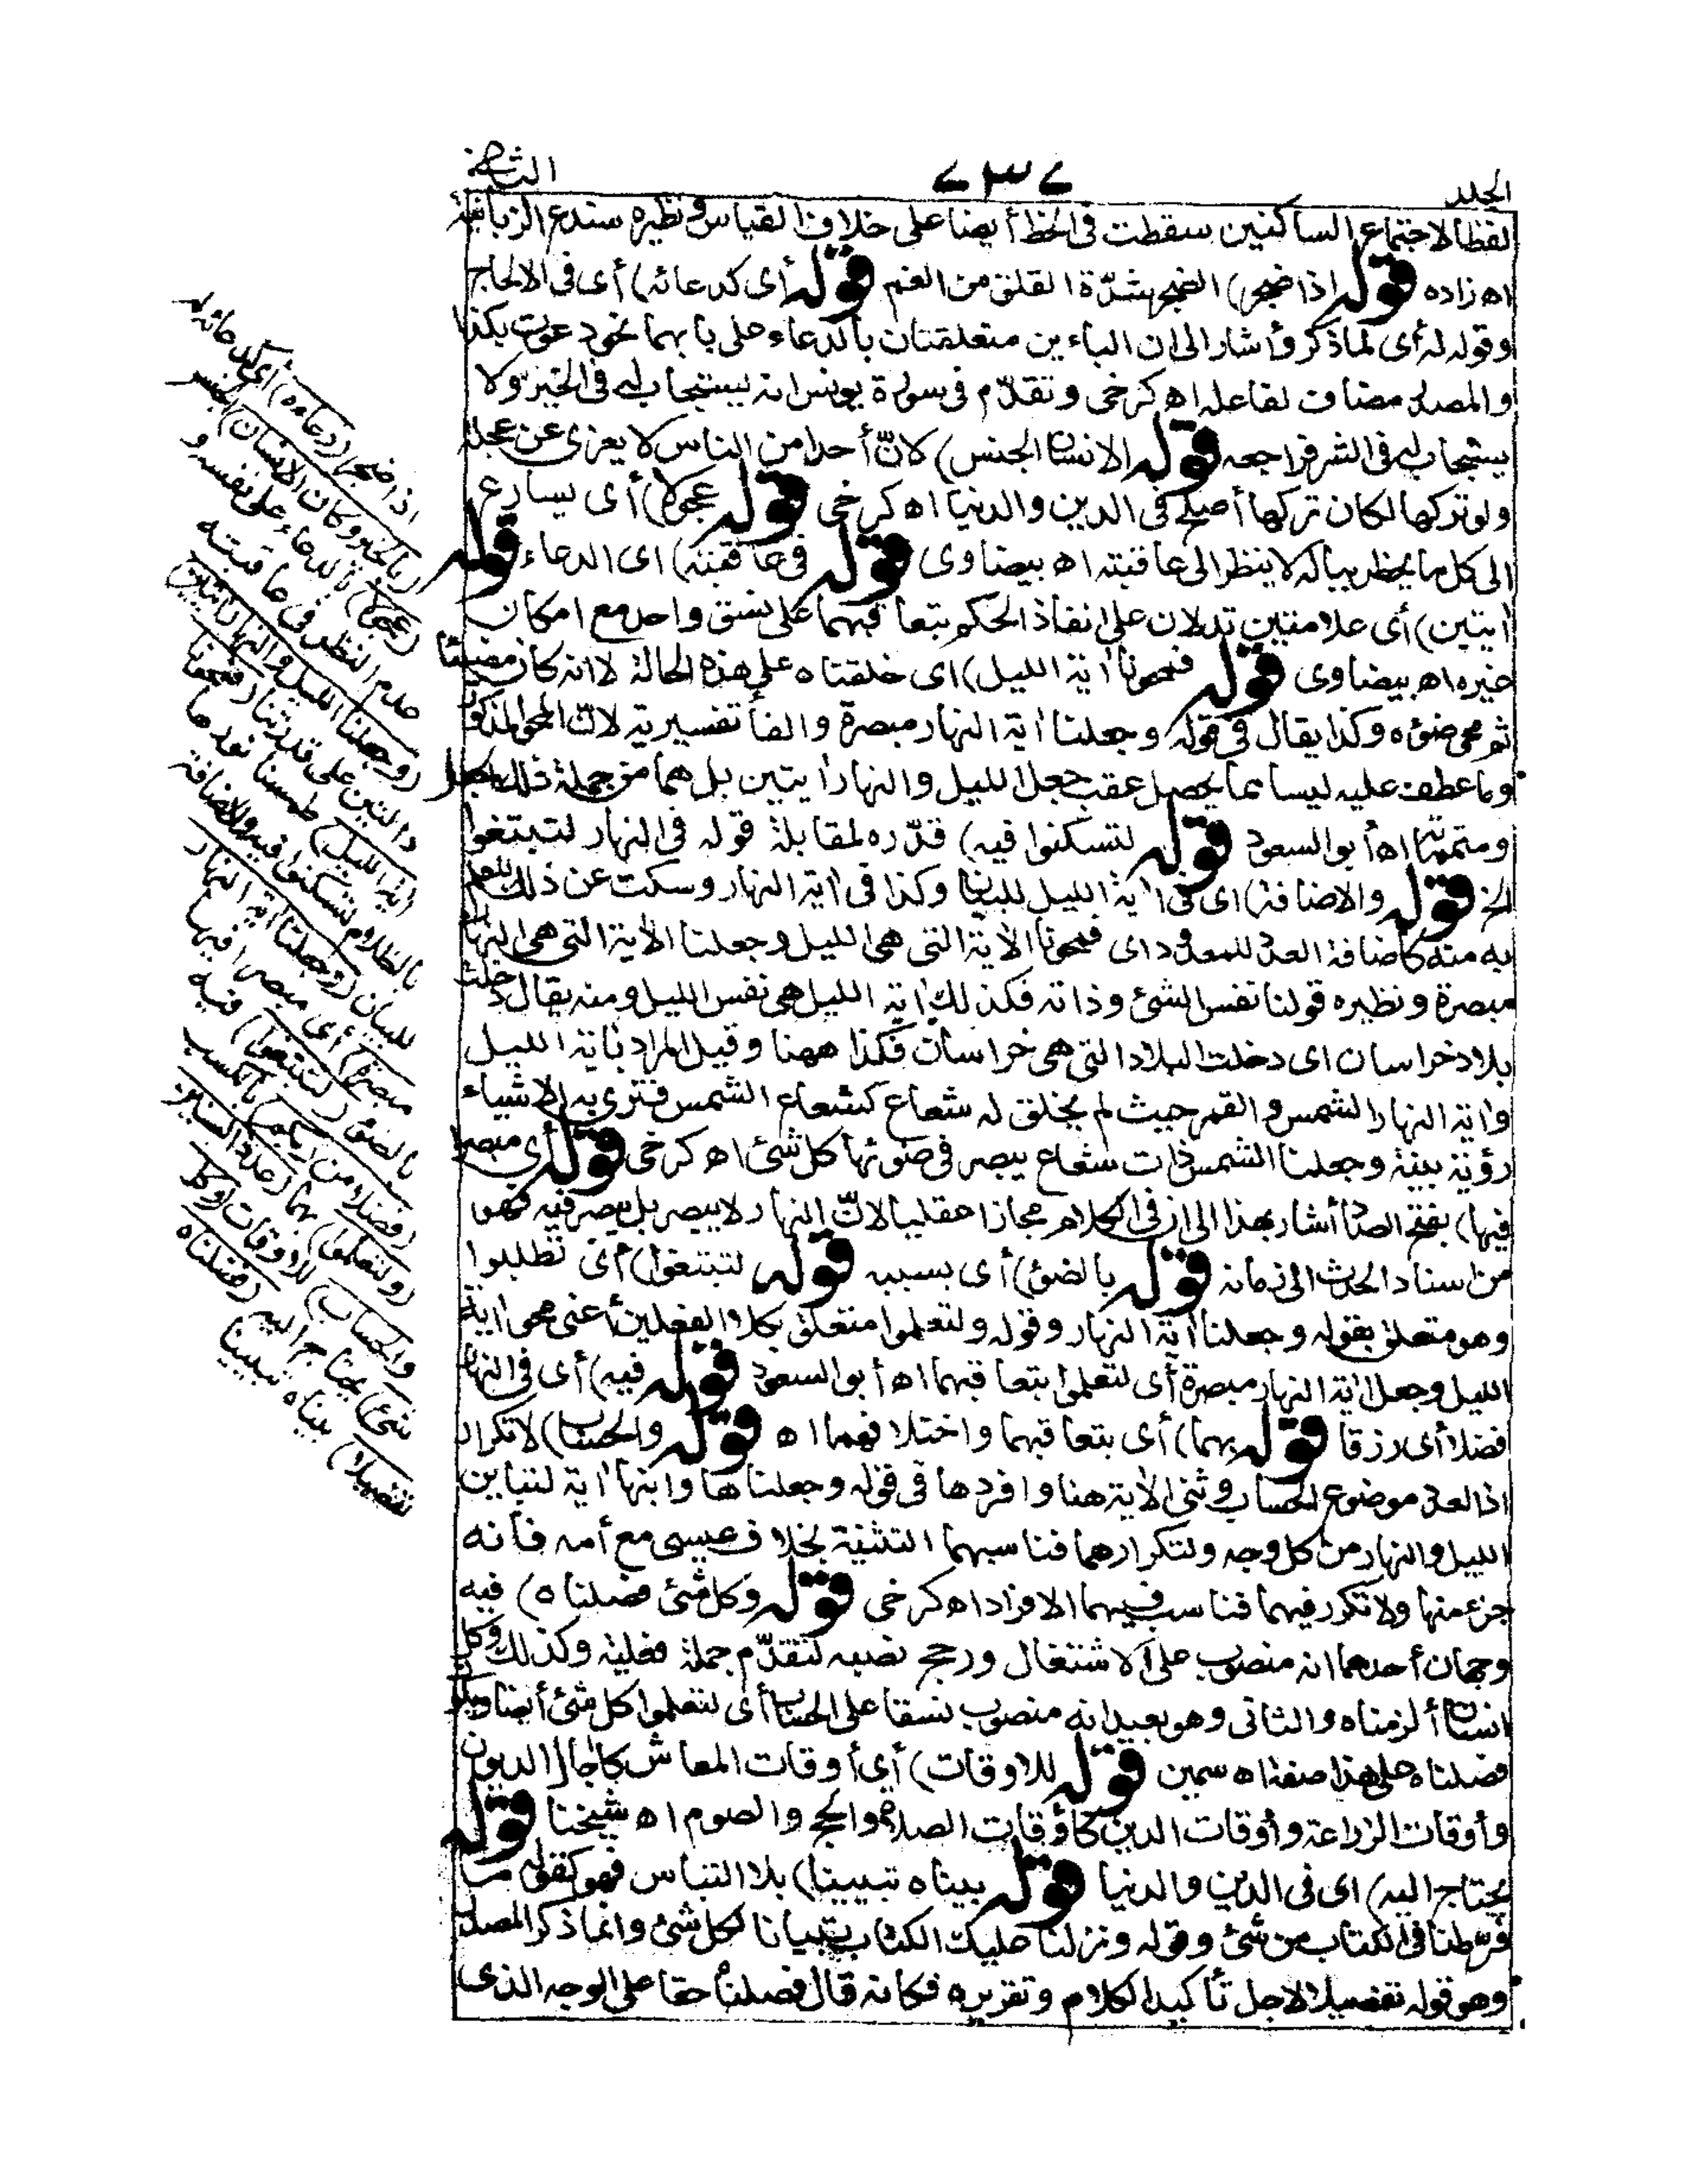 الجلد
الثانى
لفظا لاجتماع الساكنين سقطت فى الخط أيضا على خلاف القياس ونظيره سندع الزبانية
اه زاده قوله اذا ضجر) الضجر شدّة القلق من الغم قوله أى كدعائه) أى فى الالحاح
وقوله له أى لما ذكر وأشار الى ان الباءين متعلقتان بالدعاء على بابهما نحو دعوت بكذا
والمصدر مضاف لفاعله اه كرخى وتقدّم فى سورة يونس انه يستجاب له فى الخير ولا
يستجاب له فى الشر فراجعه قوله الانسان الجنس) لانّ أحدا من الناس لا يعرى عن عجلة
ولو تركها لكان تركها أصلح فى الدين والدنيا اه كرخى قوله عجولا) أى يسارع
الى كل ما يخطر بباله لا ينظر الى عاقبته اه بيضاوى قوله فى عاقبته) اى الدعاء قوله
ايتين) أى علامتين تدلان على نفاذ الحكم بتعاقبهما على نسق واحد مع امكان
غيره اه بيضاوى قوله فمحونا اية الليل) اى خلقناه على هذه الحالة لا انه كان مضيئا
ثم محى ضوؤه وكذا يقال فى قوله وجعلنا اية النهار مبصرة والفا تفسيرية لانّ المحو المذكور
وما عطف عليه ليسا مما يحصل عقب جعل الليل والنهار ايتين بل هما من جملة ذلك الجعل
ومتمماته اه أبو السعود قوله لتسكنوا فيه) قدّره لمقابلة قوله فى النهار لتبتغوا
الخ قوله والاضافة) اى فى اية الليل للبيان وكذا فى اية النهار وسكت عن ذلك للعلم
به منه كاضافة العدد للمعدود اى فمحونا الاية التى هى الليل وجعلنا الاية التى هى النهار
مبصرة ونظيره قولنا نفس الشئ وذاته فكذلك اية الليل هى نفس الليل ومنه يقال دخلت
بلاد خراسان اى دخلت البلاد التى هى خراسان فكذا ههنا وقيل المراد باية الليل
واية النهار الشمس والقمر حيث لم يخلق له شعاع كشعاع الشمس فترى به الاشياء
رؤية بينة وجعلنا الشمس ذات شعاع يبصر فى ضوئها كل شئ اه كرخى قوله أى مبصرا
فيها) بفتح الصاد أشار بهذا الى ان فى الكلام مجازا عقليا لانّ النهار لا يبصر بل يبصر فيه فهو
من اسناد الحدث الى زمانه قوله بالضوئ) أى بسببه قوله لتبتغوا) أى تطلبوا
وهو متعلق بقوله وجعلنا اية النهار وقوله ولتعلموا متعلق بكلا الفعلين أعنى محو اية
الليل وجعل اية النهار مبصرة أى لتعلموا بتعاقبهما اه أبو السعود قوله فيه) أى فى النهار
فضلا أى رزقا قوله بهما) أى بتعاقبهما واختلافهما اه قوله والحساب) لا تكرار
اذ العدد موضوع الحساب وثنى الاية هنا وافردها فى قوله وجعلناها وابنها اية لتباين
الليل والنهار من كل وجه ولتكرارهما فناسبهما التثنية بخلاف عيسى مع أمه فانه
جزء منها ولا تكرر فيهما فناسب فيهما الافراد اه كرخى قوله وكل شئ فصلناه) فيه
وجهان أحدهما انه منصوب على الاشتغال ورجح نصبه لتقدّم جملة فعلية وكذلك وكل
انسان ألزمناه والثانى وهو بعيد انه منصوب نسقا على الحساب أى لتعلموا كل شئ أيضا ويكون
فصلناه على هذا صفة اه سمين قوله للاوقات) أى أوقات المعاش كاجال الديون
وأوقات الزراعة وأوقات الدين كأوقات الصلاة والحج والصوم اه شيخنا قوله
يحتاج اليه) اى فى الدين والدنيا قوله بيناه تبيينا) بلا التباس فهو كقوله ما
فرّطنا فى الكتاب من شئ وقوله ونزلنا عليك الكتاب تبيانا لكل شئ وانما ذكر المصدر
وهو قوله تفصيلا لاجل تأكيد الكلام وتقريره فكانه قال فصلناه حقا على الوجه الذى
اذا ضجر (دعاءه) أى كدعائه له
(بالخير وكان الانسان) الجنس
(عجولا) بالدعاء على نفسه و
عدم النظر فى عاقبته
(وجعلنا الليل والنهار ايتين)
دالتين على قدرتنا (فمحونا
اية الليل) طمسنا نورها
بالظلام لتسكنوا فيه والاضافة
للبيان (وجعلنا اية النهار
مبصرة) أى مبصرا فيها
بالضوء (لتبتغوا) فيه
(فضلا من ربكم) بالكسب
(ولتعلموا) بهما (عدد السنين
والحساب) للاوقات (وكل
شئ) يحتاج اليه (فصلناه
تفصيلا) بيناه تبيينا